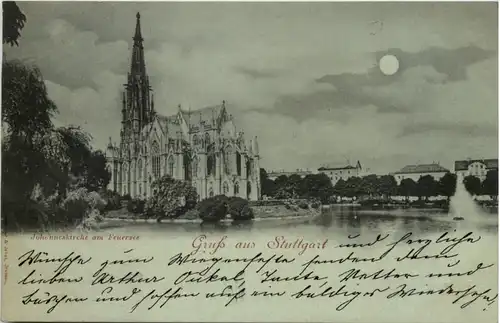 Johanneskirche am Feuersee
Gruß aus Stuttgart und herzliche
Wünsche zum Wiegenfeste senden dem
lieben Arthur Onkel, Tante Vetter und
Büschen und hoffen auf ein baldiges Wiedersehn,